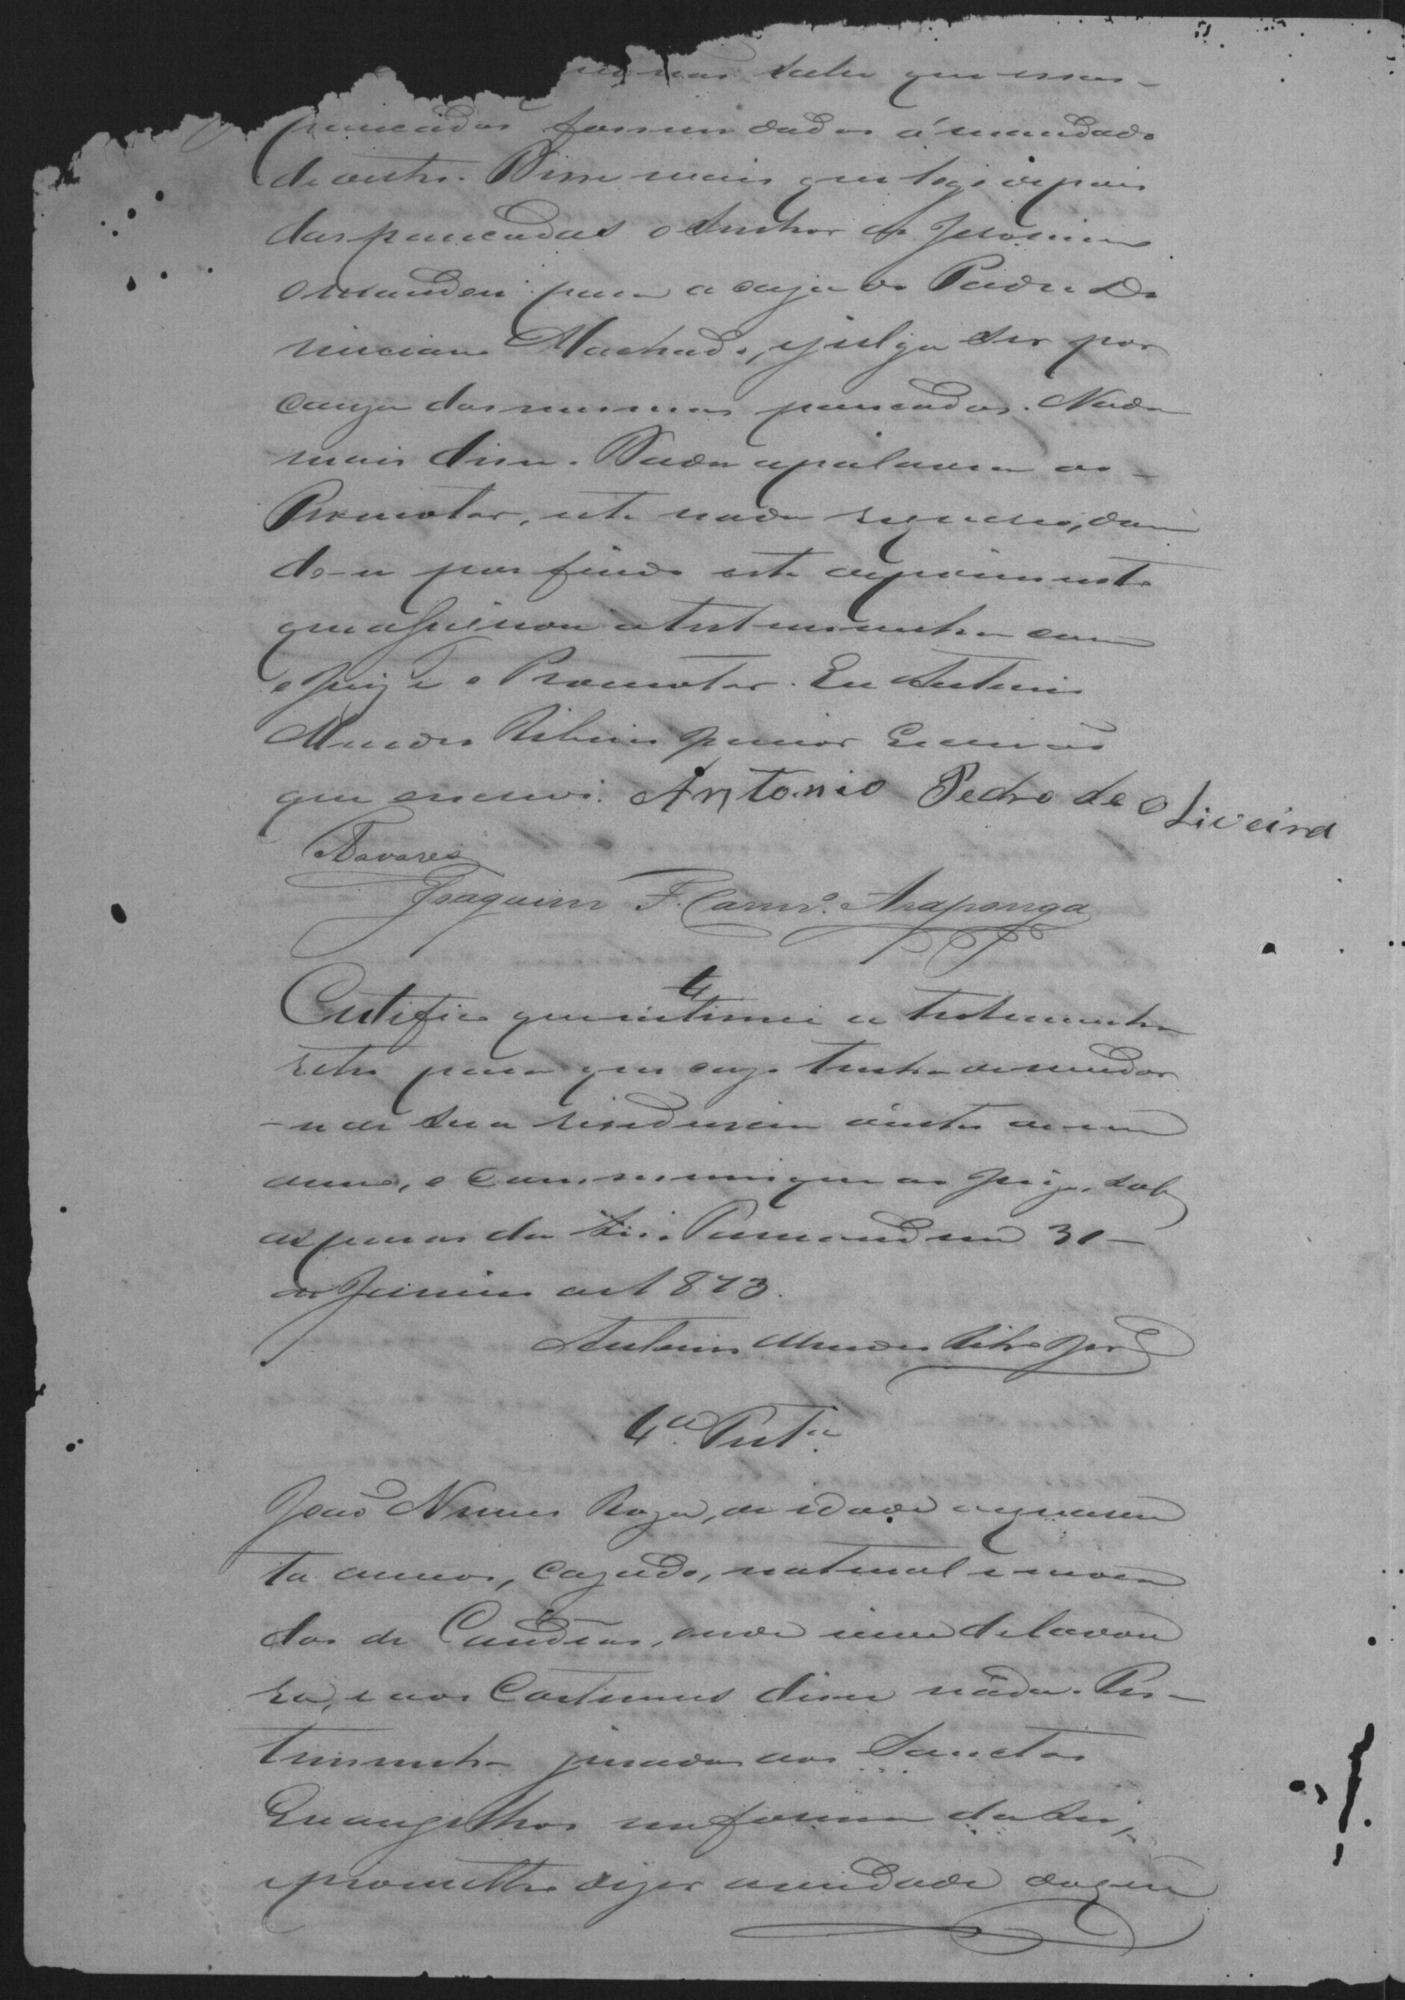 não sabe que essas
pancadas fossem dadas á mandado
de outro. Disse mais que logo depois
das pancadas o Senhor de Jeronimo
o mandou para a caza do Padre
Machado, e julga ser por
cauza das mesmas pancadas. Nada
mais disse. Dada a palavra ao
Promotor, este nada requereo, dan
do-se por findo este depoimento
que assignou a testemunha com
o Juiz e o Promotor. Eu Antonio
Mendes Ribeiro Junior Escrivão
que escrevi. Antonio Pedro de Oliveira
Tavares
Joaquim F. Carnro. Araponga
Certifico que intimei a testemunha
retro para que cazo tenha de mudar
-se de sua residencia dentro de um
anno, o communique ao Juizo, sob
as penas da Lei. 31
de 1873.
Antonio Mendes Ribro Jor
4a. Testa.
João Nunes , de idade quaren
ta annos, cazado, natural e mora
dor de , onde vive de lavou
ra, e aos Costumes disse nada. Tes-
temunha jurada aos Sanctos
Evangelhos na forma da Lei,
e prometteo dizer a verdade do que